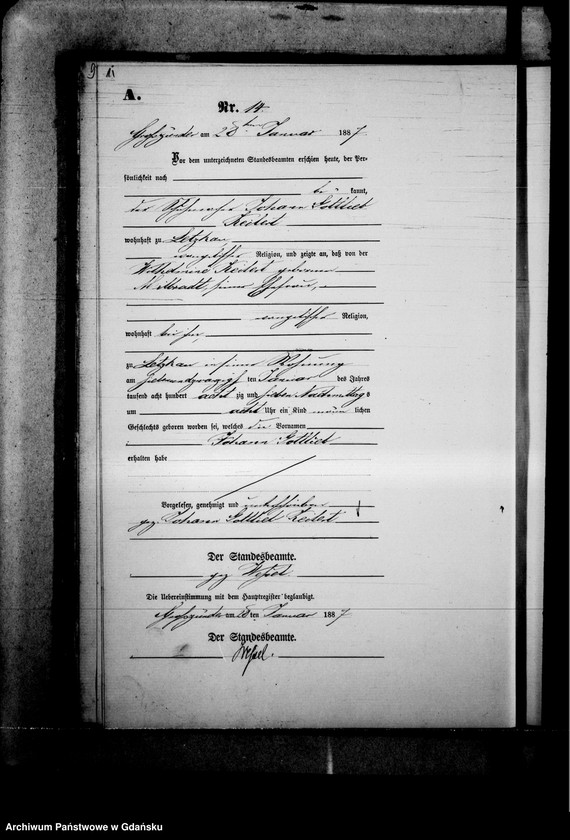 A.
Nr. 14.
am 28ten Januar 1887.
Vor dem unterzeichneten Standesbeamten erschien heute, der Per-
sönlichkeit nach
be kannt,
der Johann Gottlieb
wohnhaft zu Letzkau
evangelischer Religion, und zeigte an, daß von der
Wilhelmine geborene
seiner Ehefrau,
evangelischer Religion,
wohnhaft bei ihm,
zu Letzkau in seiner Wohnung
am siebenundzwanzigsten Januar des Jahres
tausend acht hundert achtzig und sieben Nachmittags
um acht Uhr ein Kind männlichen
Geschlechts geboren worden sei, welches die Vornamen
Johann Gottlieb
erhalten habe
Vorgelesen, genehmigt und unterschrieben
gez. Johann Gottlieb
Der Standesbeamte.
gez. Wessel.
Die Uebereinstimmung mit dem Hauptregister beglaubigt.
am 28ten Januar 1887.
Der Standesbeamte.
Wessel.
Archiwum Państwowe w Gdańsku